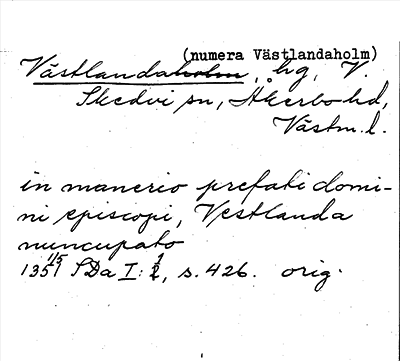 (numera Västlandaholm)
Västlandaholm, hg, V.
Skedvi sn, Åkerbo hd,
Västm. l.
in manerio prefati domi-
ni episcopi, Vestlanda
nuncupato
1351 11/5 SDa I: 1, s. 426. orig.